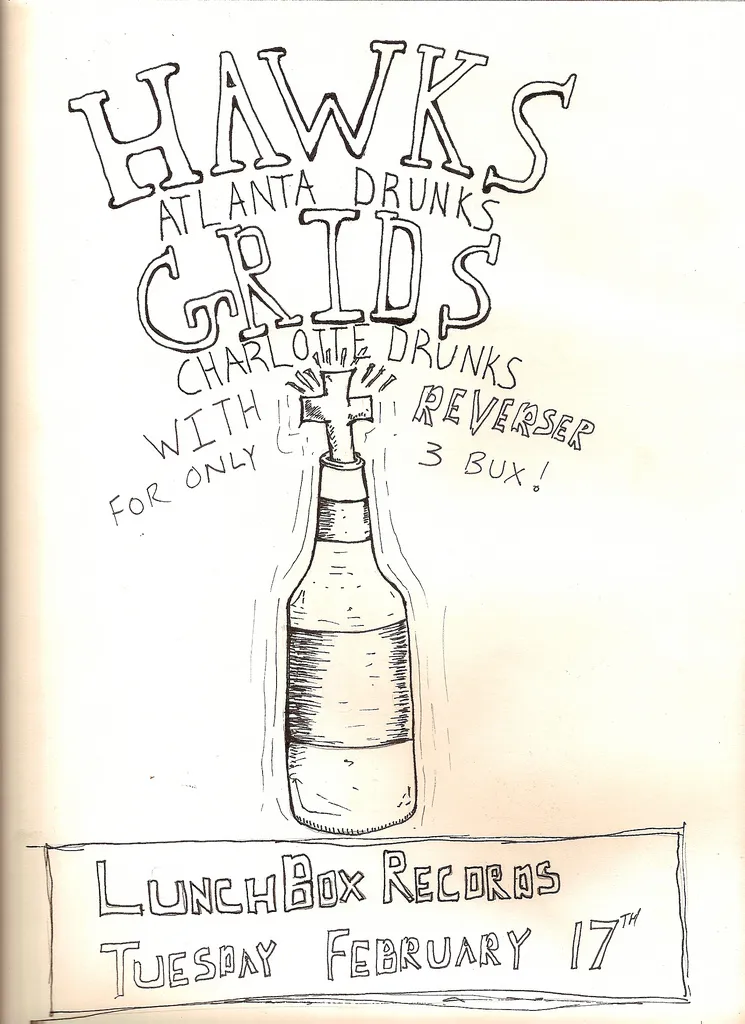 HAWKS
ATLANTA DRUNKS
GRIDS
CHARLOTTE DRUNKS
WITH REVERSER
FOR ONLY 3 BUX!
LUNCHBOX RECORDS
TUESDAY FEBRUARY 17TH